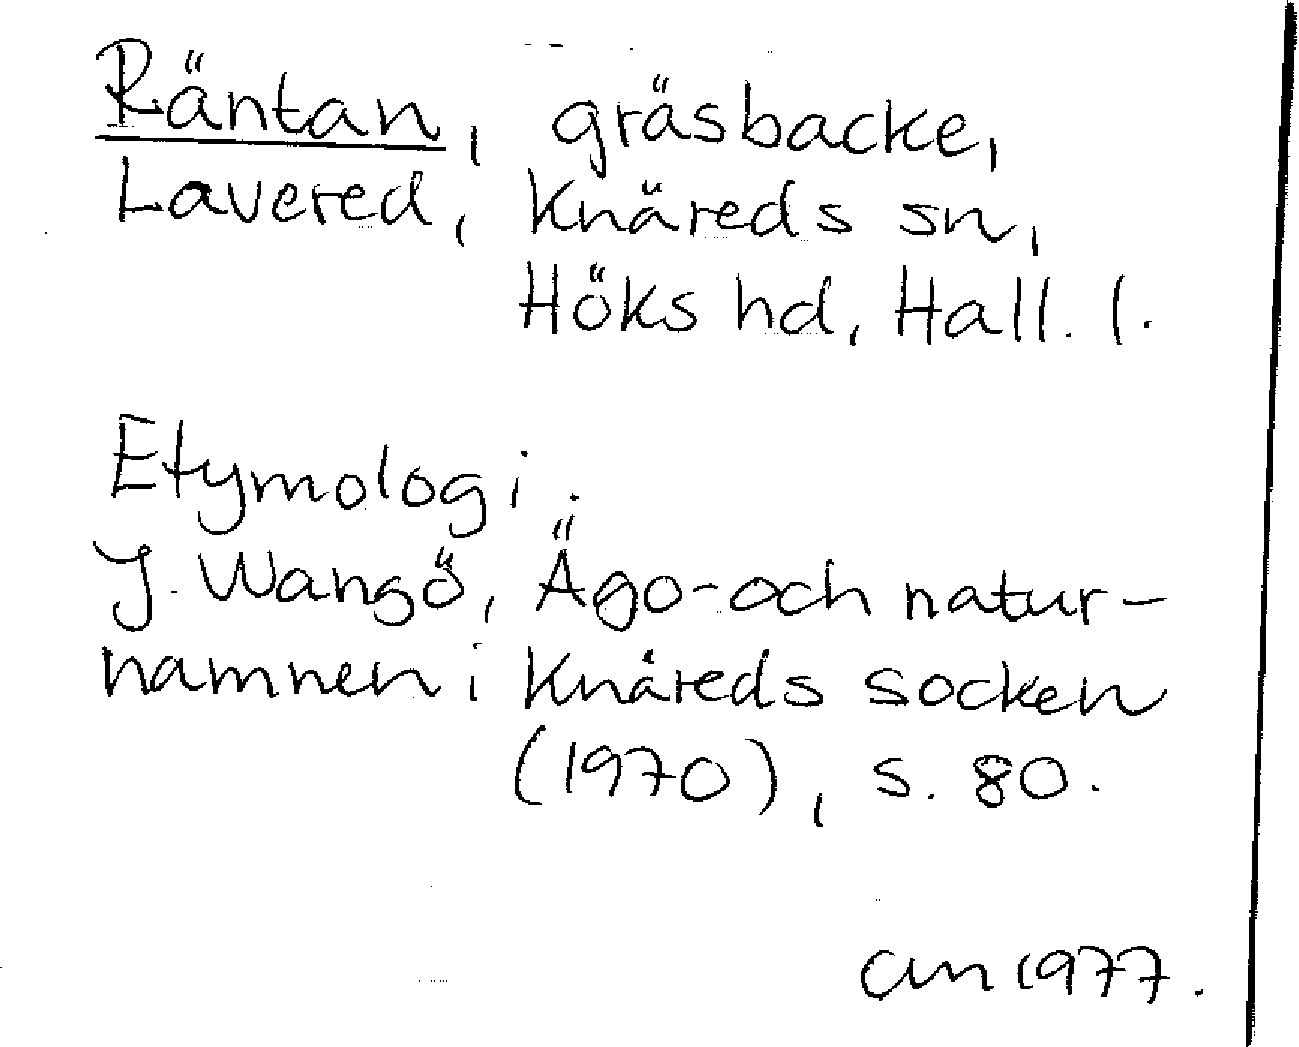 Räntan, gräsbacke,
Lavered, Knäreds sn,
Höks hd, Hall. l.
Etymologi.
J. Wangö, Ägo- och natur-
namnen i Knäreds socken
(1970), s. 80.
am 1977.